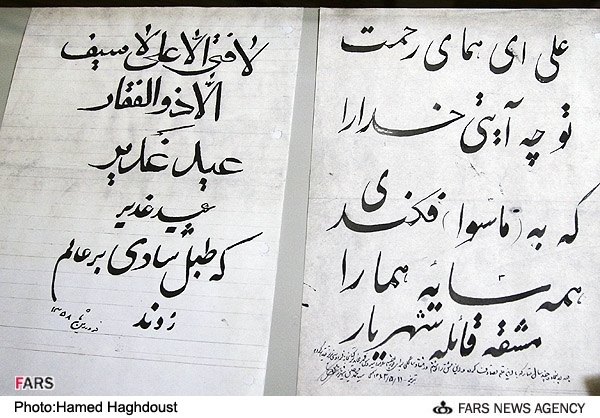 علی ای همای رحمت
تو چه آیتی خدا را
که به (ماسوا) فکندی
همه سایه هما را
مشقه قائله شهریار
لا فتی الا علی لا سیف
الا ذوالفقار
عید غدیر
عید غدیر
که طبل شادی بر عالم
زدند
FARS
Photo:Hamed Haghdoust
FARS NEWS AGENCY